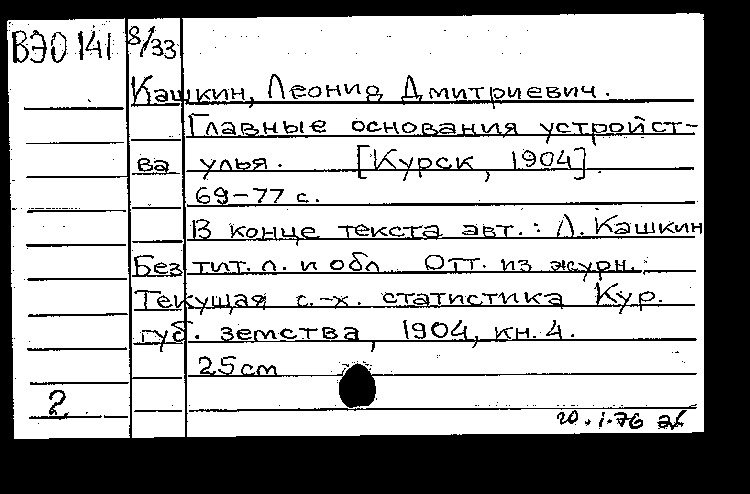 ВЭО 141 8/33
Кашкин, Леонид Дмитриевич.
Главные основания устройст-
ва улья. [Курск, 1904].
69-77 с.
В конце текста авт.: Л. Кашкин
Без тит. л. и обл. Отт. из журн.:
Текущая с.-х. статистика Кур.
губ. земства, 1904, кн. 4.
25 cm
2
20.1.76